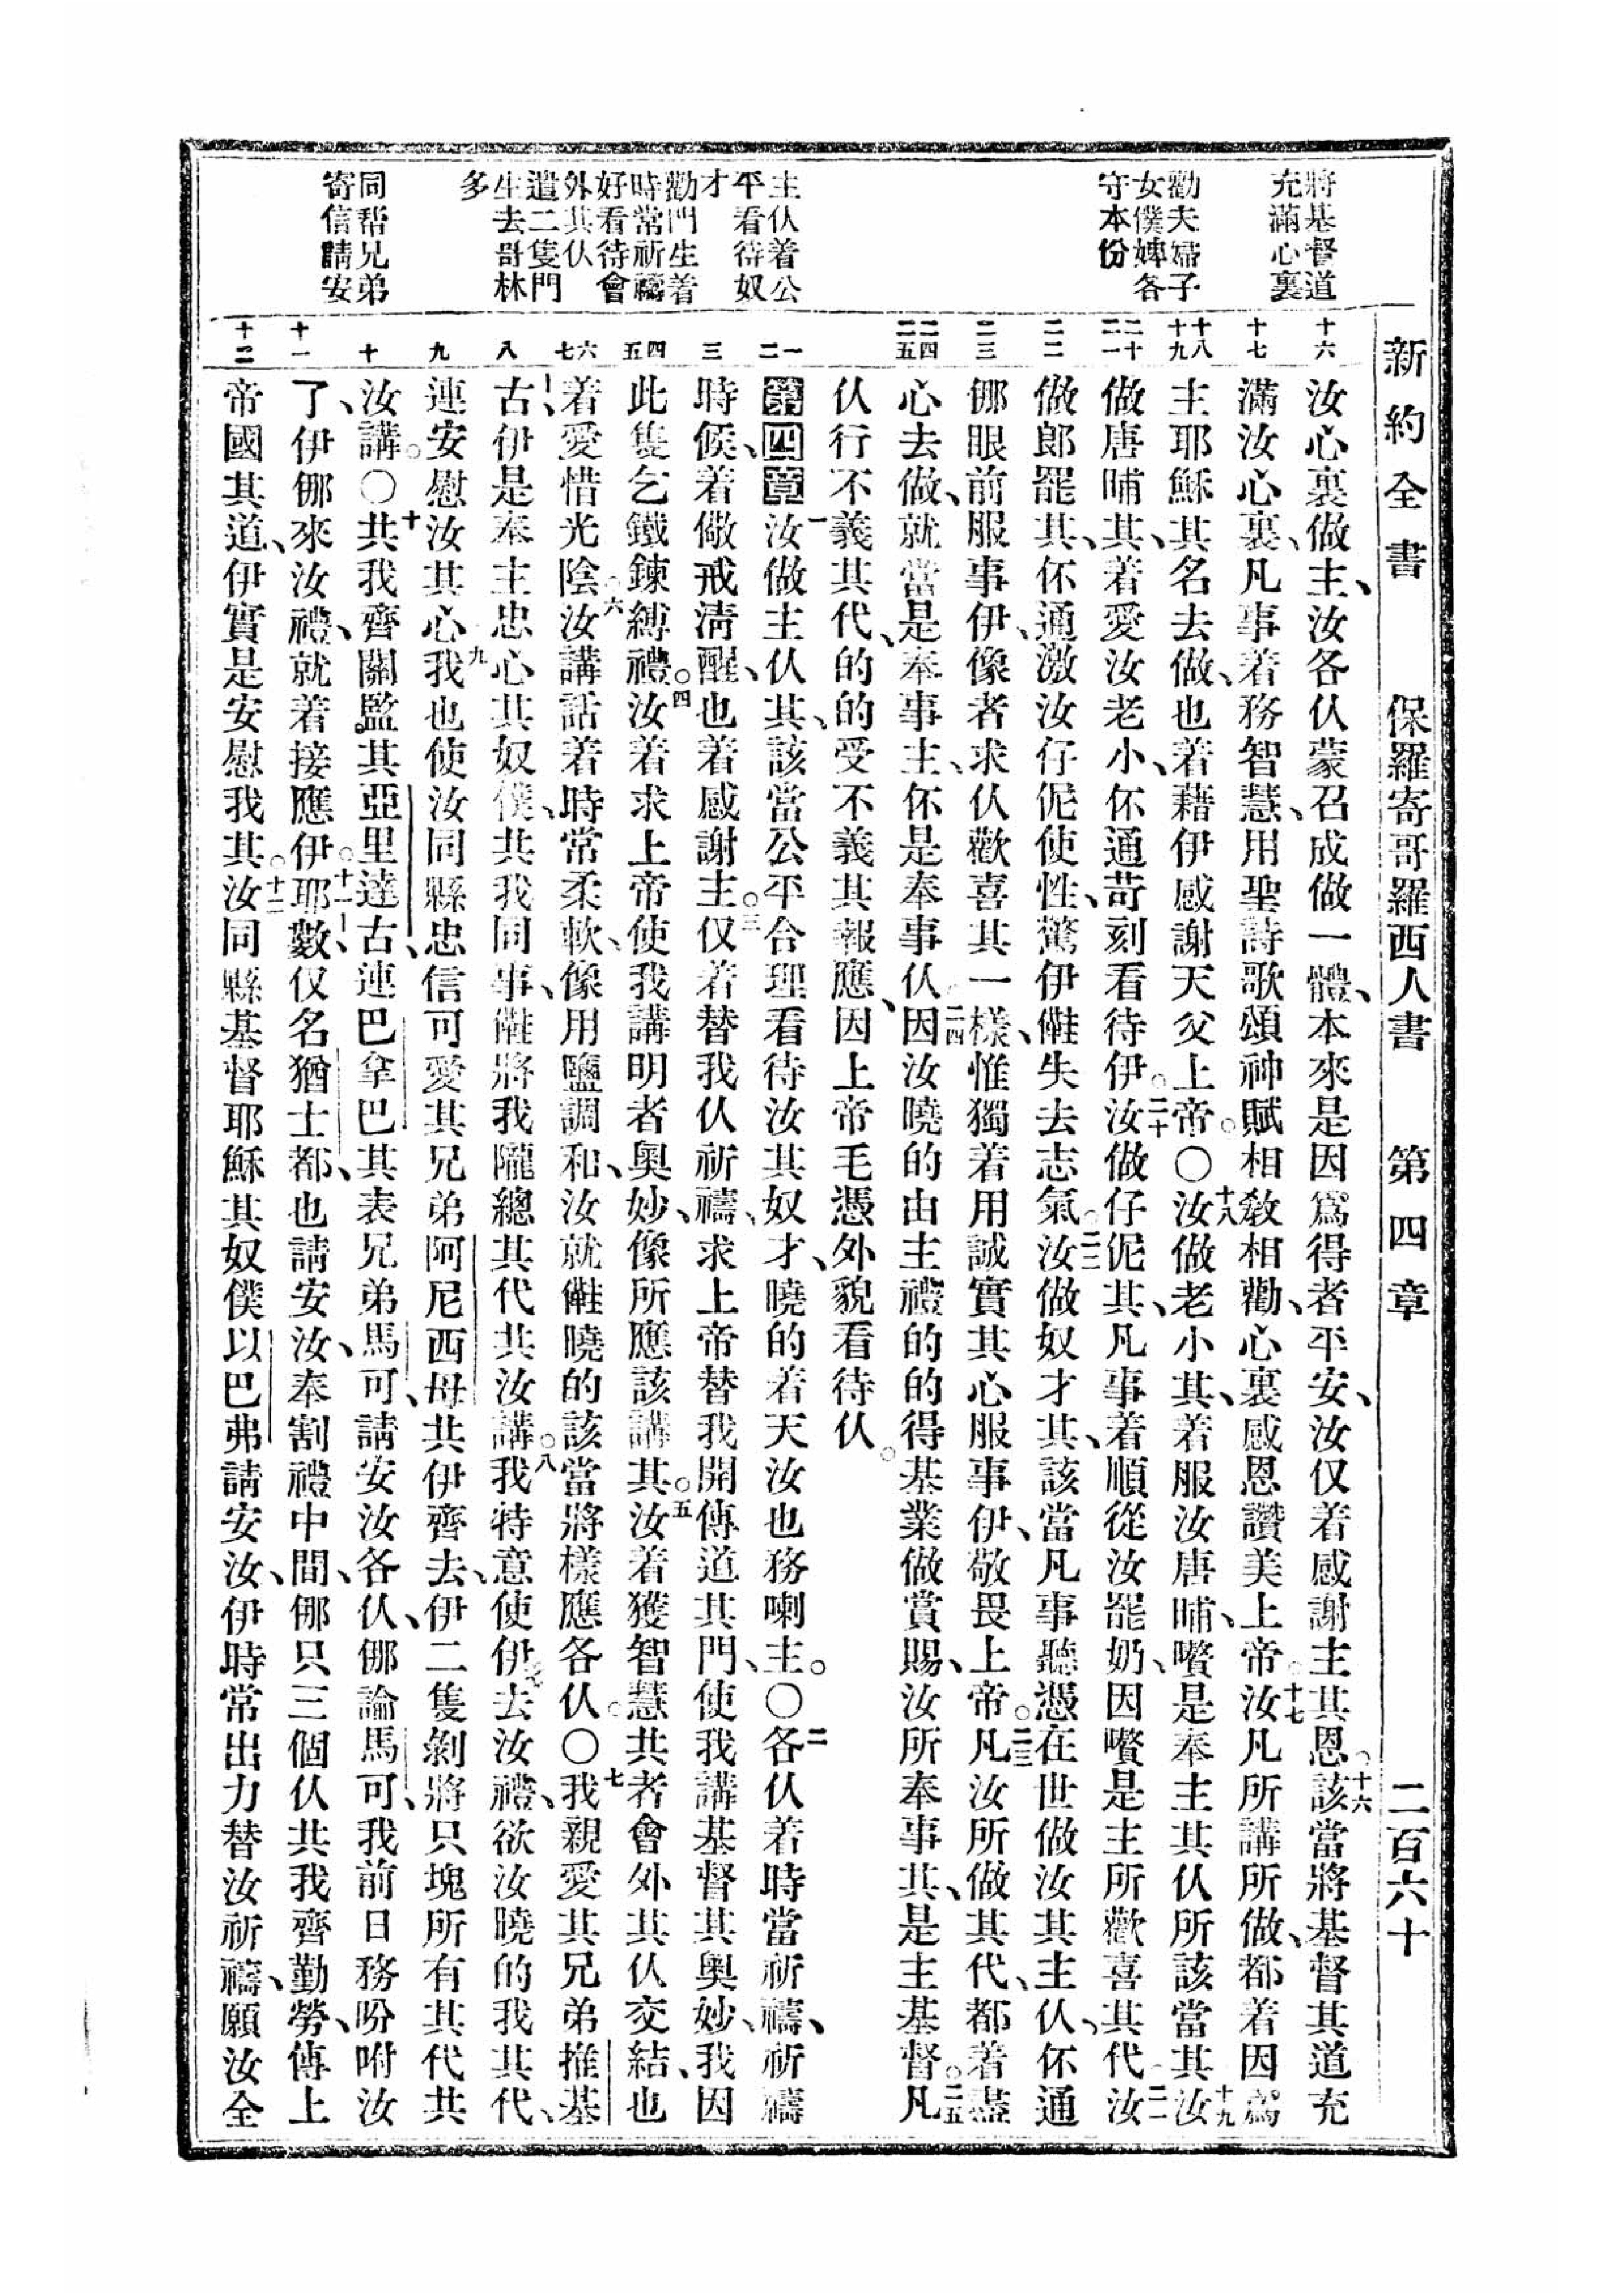 新約全書 保羅寄哥羅西人書 第四章 二百六十
將基督道
充滿心裏
勸夫婦子
女僕婢各
守本份
主仆着公
平看待奴
才
勸門生着
時常祈禱
好看待會
外其仆
遣二隻門
生去哥林
多
同帮兄弟
寄信請安
十六
十七
十八 十九
二十 二一
二二
二三
二四 二五
一 二
三
四 五
六 七
八
九
十
十一
十二
汝心裏做主、汝各仆蒙召成做一體、本來是因爲得者平安、汝仅着感謝主其恩。十六該當將基督其道充
滿汝心裏、凡事着務智慧、用聖詩歌頌神賦相敎相勸、心裏感恩讚美上帝。十七汝凡所講所做、都着因爲
主耶穌其名去做、也着藉伊感謝天父上帝。〇十八汝做老小其、着服汝唐晡、嚽是奉主其仆所該當其。十九汝
做唐晡其、着愛汝老小、伓通苛刻看待伊。二十汝做仔伲其、凡事着順從汝罷奶、因嚽是主所歡喜其代。二一汝
做郎罷其、伓通激汝仔伲使性、驚伊㒕失去志氣。二二汝做奴才其、該當凡事聽憑在世做汝其主仆、伓通
㑚眼前服事伊、像者求仆歡喜其一樣、惟獨着用誠實其心服事伊、敬畏上帝。二三凡汝所做其代、都着盡
心去做、就當是奉事主、伓是奉事仆。二四因汝曉的由主禮的的得基業做賞賜、汝所奉事其、是主基督。二五凡
仆行不義其代、的的受不義其報應、因上帝毛憑外貌看待仆。
第四章 一汝做主仆其、該當公平合理看待汝其奴才、曉的着天汝也務喇主。〇二各仆着時當祈禱、祈禱
時候、着儆戒淸醒、也着感謝主。三仅着替我仆祈禱、求上帝替我開傳道其門、使我講基督其奧妙、我因
此隻乞鐵鍊縛禮。四汝着求上帝使我講明者奧妙、像所應該講其。五汝着獲智慧共者會外其仆交結、也
着愛惜光陰。六汝講話着時常柔軟、像用鹽調和、汝就㒕曉的該當將樣應各仆。〇七我親愛其兄弟推基
古、伊是奉主忠心其奴僕、共我同事、㒕將我隴總其代共汝講。八我特意使伊去汝禮、欲汝曉的我其代、
連安慰汝其心。九我也使汝同縣忠信可愛其兄弟阿尼西母共伊齊去、伊二隻剝將只塊所有其代共
汝講。〇十共我齊關監其亞里達古、連巴拿巴其表兄弟馬可、請安汝各仆、㑚論馬可、我前日務吩咐汝
了、伊㑚來汝禮、就着接應伊。十一耶數、仅名猶士都、也請安汝、奉割禮中間、㑚只三個仆共我齊勤勞、傳上
帝國其道、伊實是安慰我其。十二汝同縣基督耶穌其奴僕以巴弗請安汝、伊時常出力替汝祈禱、願汝全